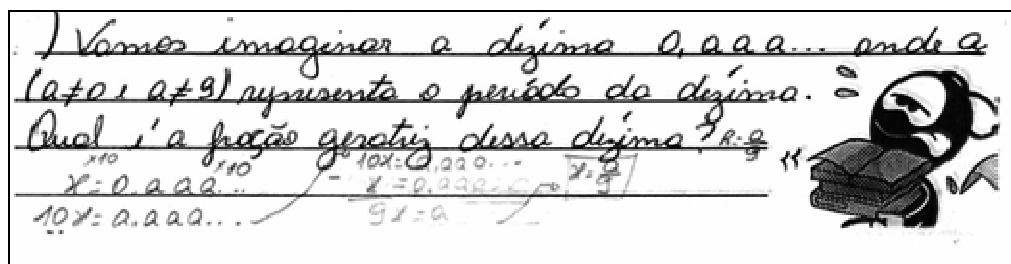 ) Vamos imaginar a dízima 0,aaa... onde a
(a≠0 e a≠9) representa o período da dízima.
Qual é a fração geratriz dessa dízima? R=a/9
x10 x10
x=0,aaa...
10x=a,aaa...
- 10x=a,aaa...
x=0,aaa...
9x=a
x=a/9